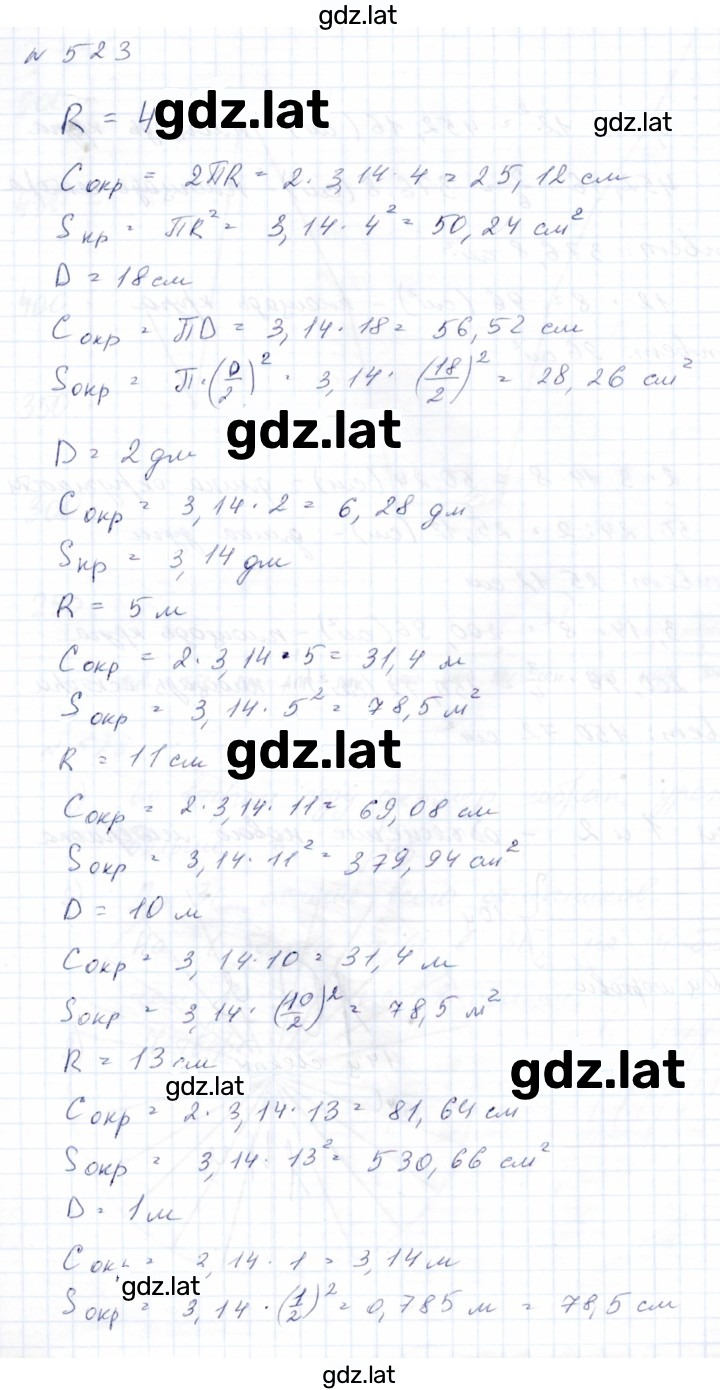 gdz.lat
№ 523
R = 4 gdz.lat
gdz.lat
Cокр = 2πR = 2 · 3,14 · 4 = 25,12 см
Sкр = πR² = 3,14 · 4² = 50,24 см²
D = 18 см
Cокр = πD = 3,14 · 18 = 56,52 см
Sокр = π · (D/2)² · 3,14 · (18/2)² = 28,26 см²
gdz.lat
D = 2 дм
Cокр = 3,14 · 2 = 6,28 дм
Sкр = 3,14 дм
R = 5 м
Cокр = 2 · 3,14 · 5 = 31,4 м
Sокр = 3,14 · 5² = 78,5 м²
R = 11 см gdz.lat
Cокр = 2 · 3,14 · 11 = 69,08 см
Sокр = 3,14 · 11² = 379,94 см²
D = 10 м
Cокр = 3,14 · 10 = 31,4 м
Sокр = 3,14 · (10/2)² = 78,5 м²
R = 13 см
gdz.lat gdz.lat
Cокр = 2 · 3,14 · 13 = 81,64 см
Sокр = 3,14 · 13² = 530,66 см²
D = 1 м
Cокр = 3,14 · 1 = 3,14 м
gdz.lat
Sокр = 3,14 · (1/2)² = 0,785 м = 78,5 см
gdz.lat